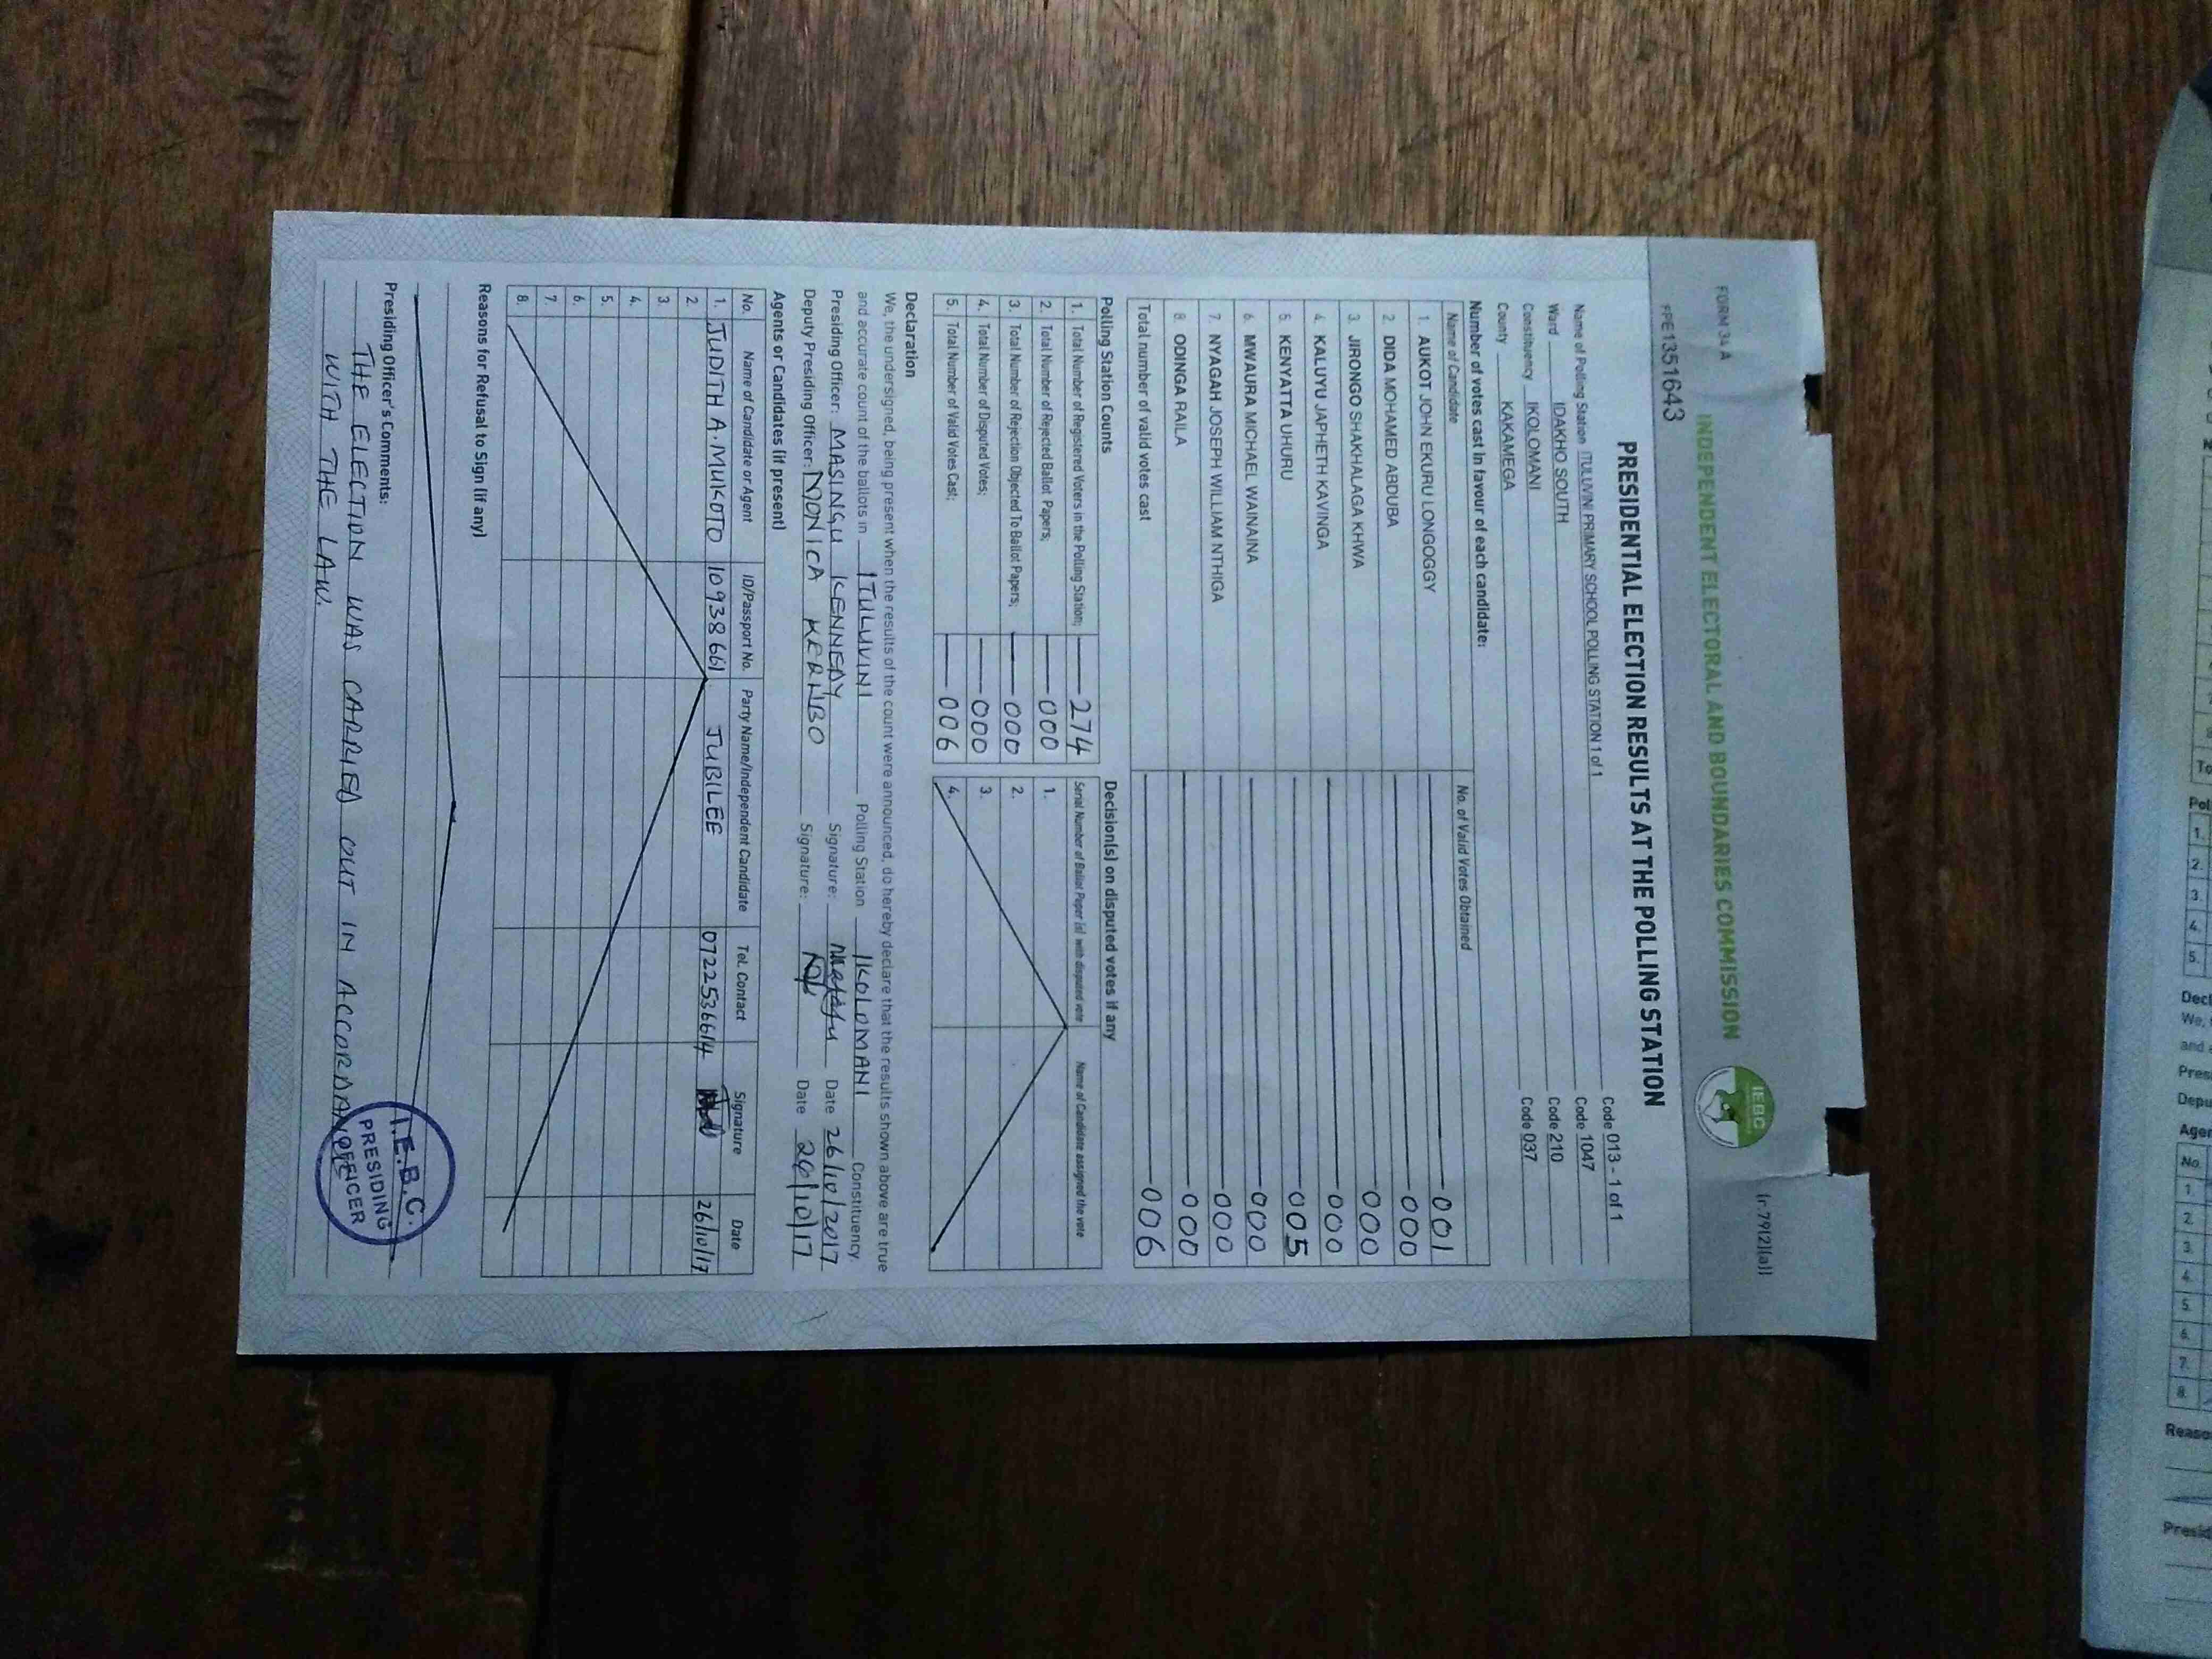 FORM 34 A
(r.79(2)(a))
INDEPENDENT ELECTORAL AND BOUNDARIES COMMISSION
IEBC
PE1351643
PRESIDENTIAL ELECTION RESULTS AT THE POLLING STATION
Name of Polling Station ITULUVINI PRIMARY SCHOOL POLLING STATION 1 of 1 Code 013 - 1 of 1
Ward IDAKHO SOUTH Code 1047
Constituency IKOLOMANI Code 210
County KAKAMEGA Code 037
Number of votes cast in favour of each candidate:
Name of Candidate No. of Valid Votes Obtained
1. AUKOT JOHN EKURU LONGOGGY 001
2. DIDA MOHAMED ABDUBA 000
3. JIRONGO SHAKHALAGA KHWA 000
4. KALUYU JAPHETH KAVINGA 000
5. KENYATTA UHURU 005
6. MWAURA MICHAEL WAINAINA 000
7. NYAGAH JOSEPH WILLIAM NTHIGA 000
8. ODINGA RAILA 000
Total number of valid votes cast 006
Polling Station Counts
1. Total Number of Registered Voters in the Polling Station; 274
2. Total Number of Rejected Ballot Papers; 000
3. Total Number of Rejection Objected To Ballot Papers; 000
4. Total Number of Disputed Votes; 000
5. Total Number of Valid Votes Cast; 006
Decision(s) on disputed votes if any
Serial Number of Ballot Paper (s) with disputed vote Name of Candidate assigned the vote
1.
2.
3.
4.
Declaration
We, the undersigned, being present when the results of the count were announced, do hereby declare that the results shown above are true
and accurate count of the ballots in ITULUVINI Polling Station IKOLOMANI Constituency.
Presiding Officer: MASINGU KENNEDY Signature: Date 26/10/2017
Deputy Presiding Officer: MONICA Signature: Date 26/10/17
Agents or Candidates (if present)
No. Name of Candidate or Agent ID/Passport No. Party Name/Independent Candidate Tel. Contact Signature Date
1. JUDITH A. MUKOTO 10938661 JUBILEE 0722536614 26/10/17
2.
3.
4.
5.
6.
7.
8.
Reasons for Refusal to Sign (if any)
Presiding Officer's Comments:
THE ELECTION WAS CARRIED OUT IN ACCORDANCE
WITH THE LAW.
I.E.B.C.
PRESIDING
OFFICER